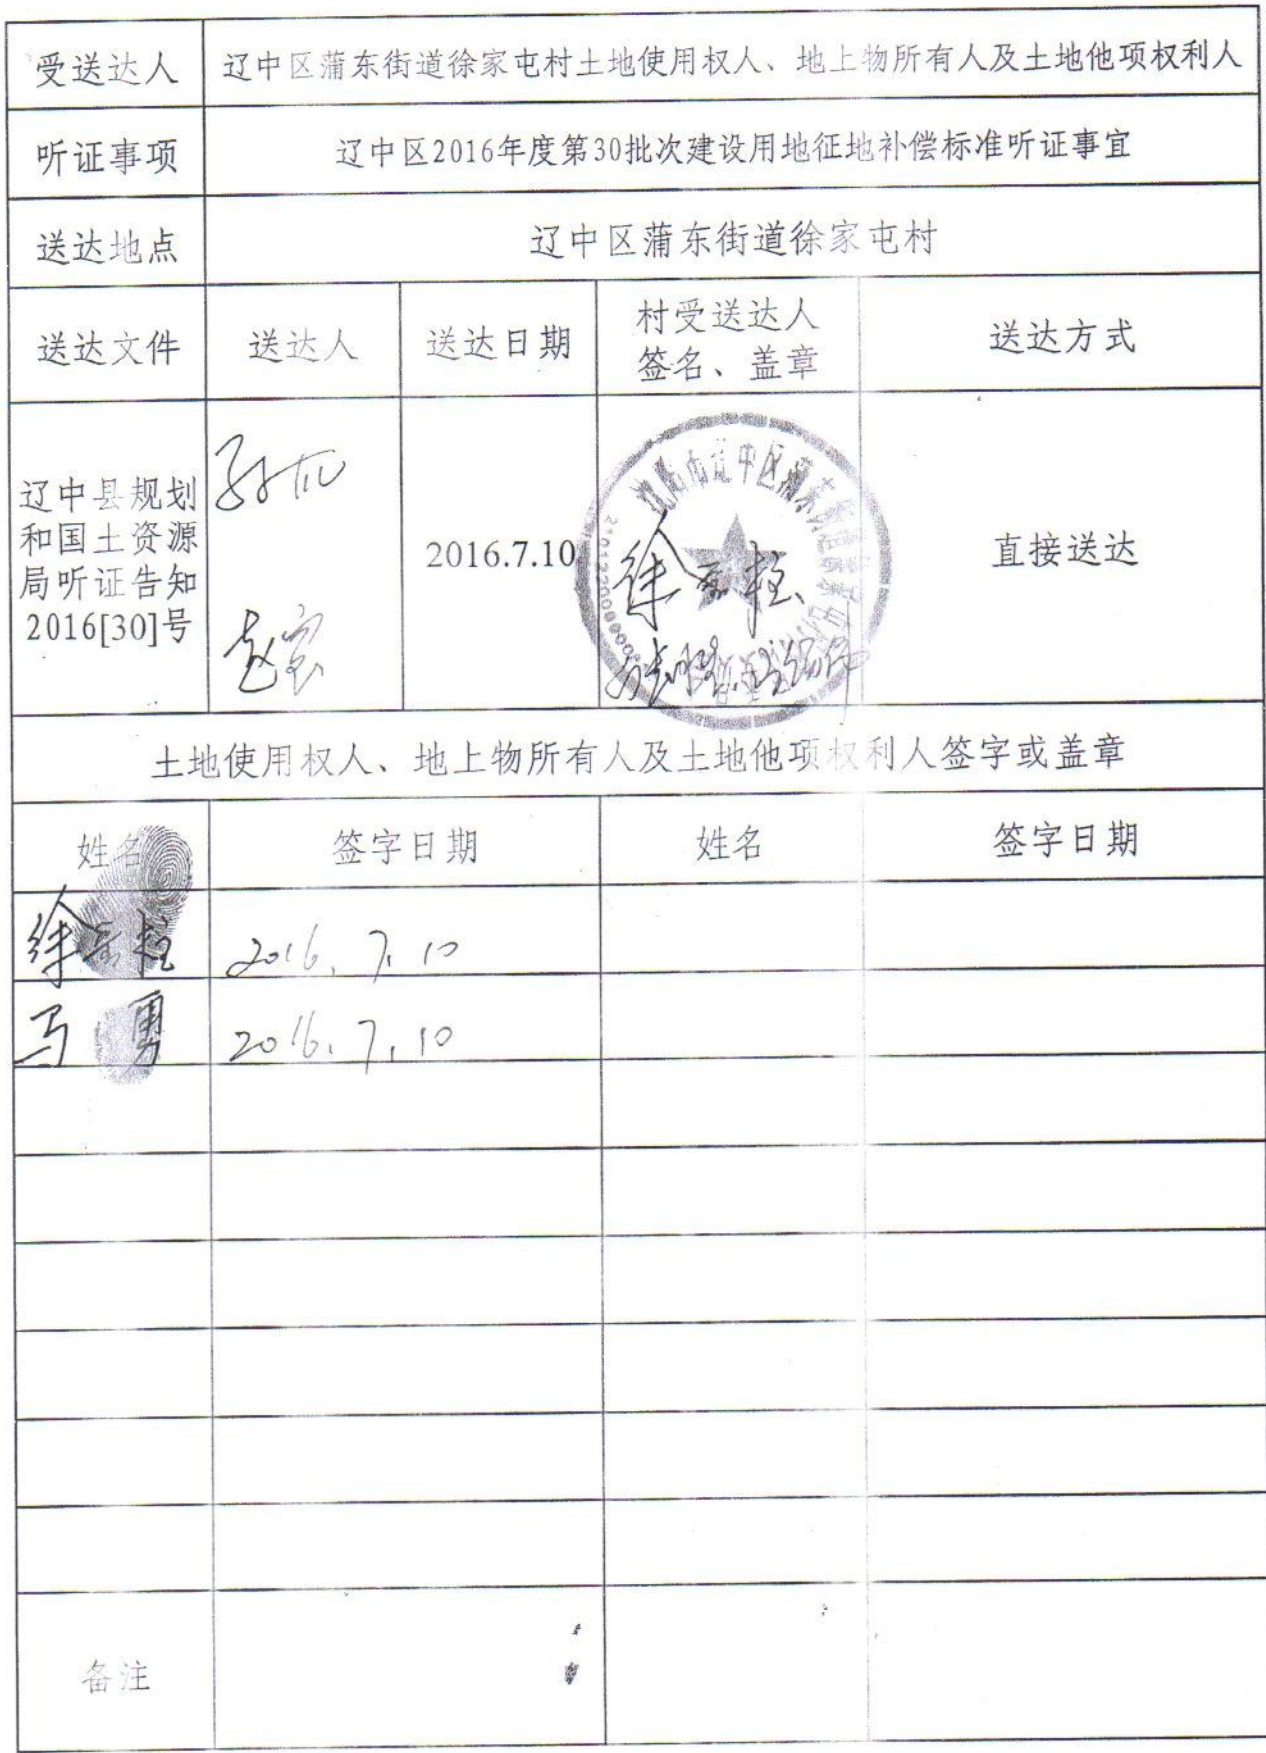 受送达人 辽中区蒲东街道徐家屯村土地使用权人、地上物所有人及土地他项权利人
听证事项 辽中区2016年度第30批次建设用地征地补偿标准听证事宜
送达地点 辽中区蒲东街道徐家屯村
送达文件 送达人 送达日期 村受送达人 送达方式
签名、盖章
辽中县规划
和国土资源
局听证告知
2016[30]号
2016.7.10
直接送达
土地使用权人、地上物所有人及土地他项权利人签字或盖章
姓名 签字日期 姓名 签字日期
徐 柱 2016.7.10
马勇 2016.7.10
备注